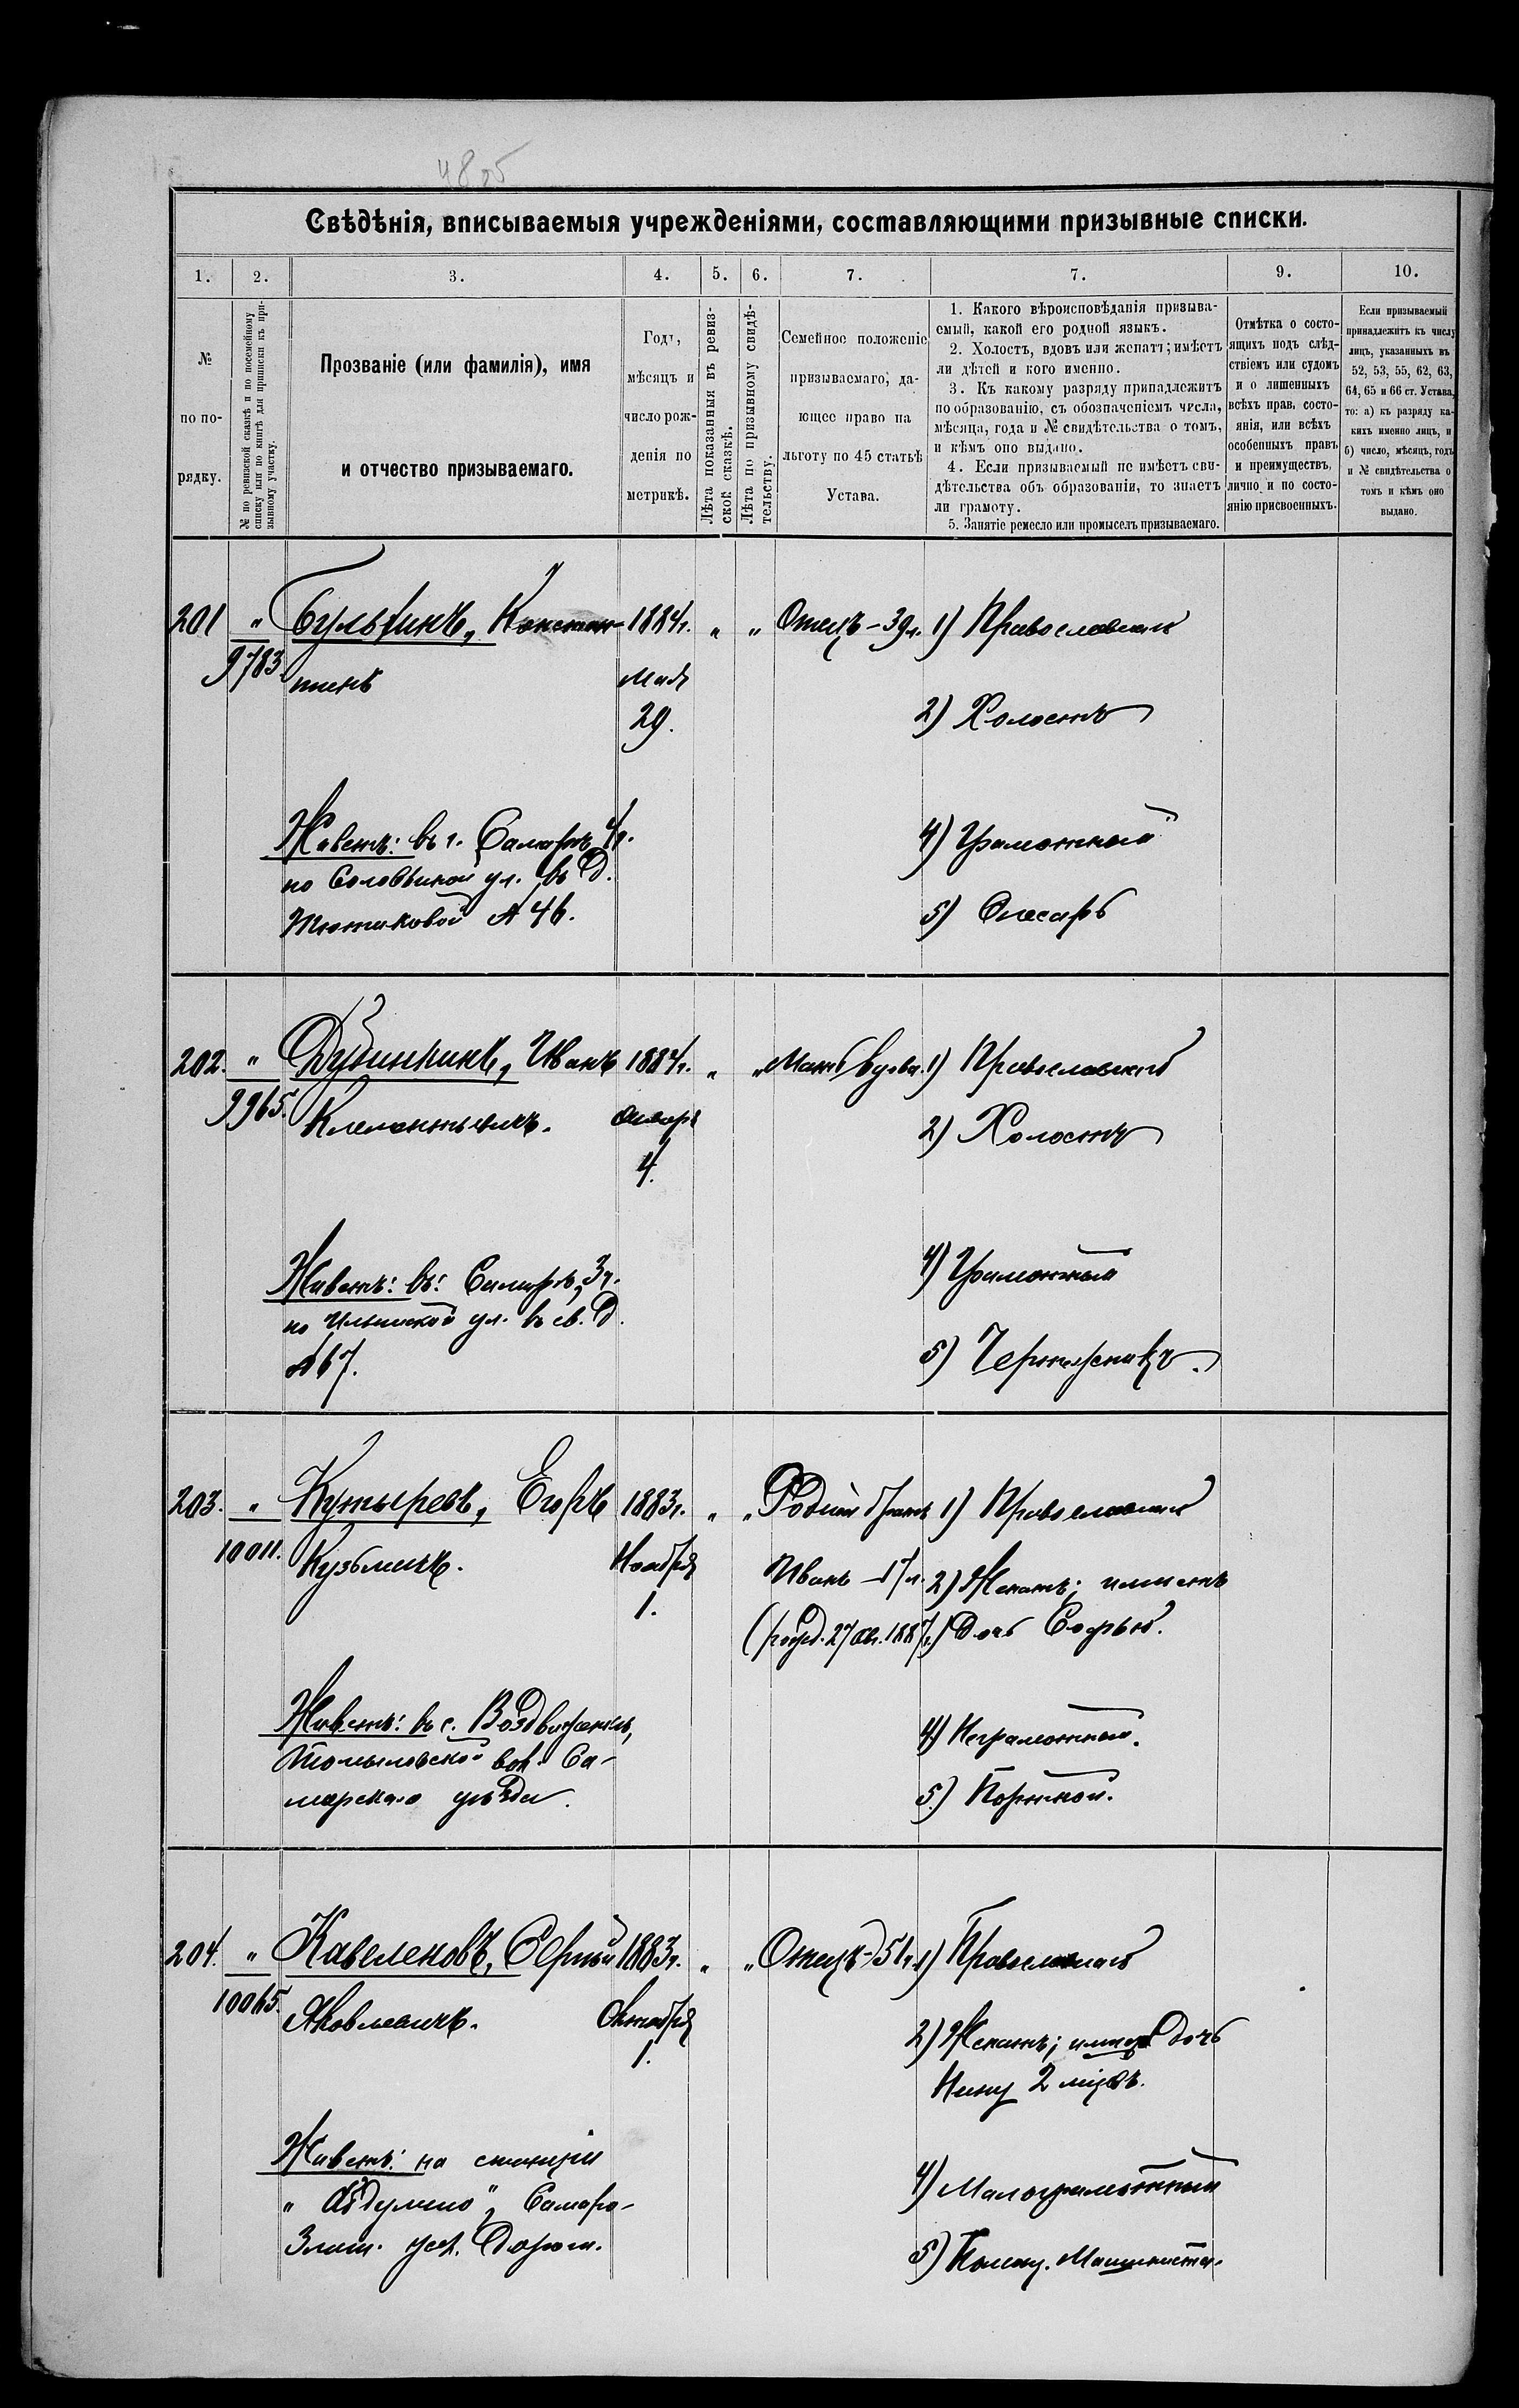 48об
Свѣдѣнія, вписываемыя учрежденіями, составляющими призывные списки.
1. 2. 3. 4. 5. 6. 7. 7. 9. 10.
№
по по-
рядку.
№ по ревизской сказкѣ и по посемейному
списку или по книгѣ для приписки къ при-
зывному участку.
Прозваніе (или фамилія), имя
и отчество призываемаго.
Годъ,
мѣсяцъ и
число рож-
денія по
метрикѣ.
Лѣта показанныя въ ревиз-
ской сказкѣ.
Лѣта по призывному свидѣ-
тельству.
Семейное положеніе
призываемаго, да-
ющее право на
льготу по 45 статьѣ
Устава.
1. Какого вѣроисповѣданія призыва-
емый, какой его родной языкъ.
2. Холостъ, вдовъ или женатъ; имѣетъ
ли дѣтей и кого именно.
3. Къ какому разряду принадлежитъ
по образованію, съ обозначеніемъ числа,
мѣсяца, года и № свидѣтельства о томъ,
и кѣмъ оно выдано.
4. Если призываемый не имѣетъ сви-
дѣтельства объ образованіи, то знаетъ
ли грамоту.
5. Занятіе ремесло или промыселъ призываемаго.
Отмѣтка о состо-
ящихъ подъ слѣд-
ствіемъ или судомъ
и о лишенныхъ
всѣхъ прав. состо-
янія, или всѣхъ
особенныхъ правъ
и преимуществъ,
лично и по состо-
янію присвоенныхъ.
Если призываемый
принадлежитъ къ числу
лицъ, указанныхъ въ
52, 53, 55, 62, 63,
64, 65 и 66 ст. Устава,
то: а) къ разряду ка-
кихъ именно лицъ, и
б) число, мѣсяцъ, годъ
и № свидѣтельства о
томъ и кѣмъ оно
выдано.
201 " Константи- 1884г. " " Отецъ-39л. 1) Православный
9783. тинъ Мая
29. 2) Холостъ
Живетъ: въ г. Самарѣ, 4ч. 4) Грамотный
по Соловьиной ул. въ д.
№ 46. 5) Слесарь
202. " Дубинкинъ, Иванъ 1884г. " " Мать вдова. 1) Православный
9965. Клементьевичъ. 2) Холостъ
4.
Живетъ: въ: Самарѣ, 3ч. 4) Грамотный
по Ильинской ул. въ св. д.
№ 67. 5) Чертежникъ.
203. " Кутыревъ, Егоръ 1883г. " " Родной братъ 1) Православный
10011. Кузьмичъ. Ноября Иванъ -17л. 2) Женатъ; имѣетъ
1. (рожд. 27 1887г.) дочь Софью.
Живетъ: въ с. Воздвиженкѣ, 4) Неграмотный.
Томыловской вол. Са-
марскаго уѣзда. 5) Портной.
204. " Кавеленовъ, Сергѣй 1883г. " " Отецъ-51г. 1) Православный
10065. Яковлевичъ. Октября
1. 2) Женатъ; имѣетъ дочь
Нину 2 мѣсяц.
Живетъ: на станціи 4) Малограмотный
" Абдулино", Самаро-
Злат. жел. дороги. 5) Помощ. Машиниста.